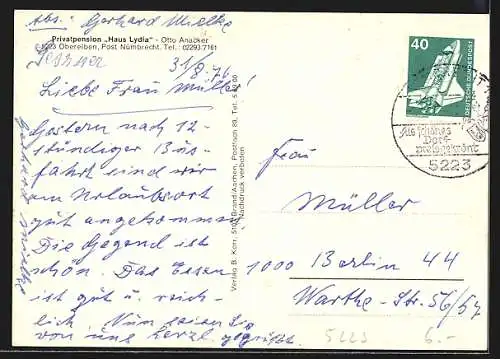 Abs: Gerhard Mielke
Privatpension „Haus Lydia“ - Otto Anacker
5223 Obereiben, Post Nümbrecht, Tel.: 02293-7161
31/8.76
Liebe Frau Müller!
Gestern nach 12-
stündiger Bus-
fahrt sind wir
am Urlaubsort
gut angekommen
Die Gegend ist
schön. Das Essen
ist gut u. reich-
lich. Nun seien Sie
von uns herzl. gegrüßt.
Gerhard Mielke
Verlag B. Korr, 5100 Brand/Aachen, Postfach 83, Tel. 5 20 60
Nachdruck verboten
40
DEUTSCHE BUNDESPOST
Als schönes
Dorf
preisgekrönt
5223
Frau
Müller
1000 Berlin 44
Warthe-Str. 56/57
5223
6.-